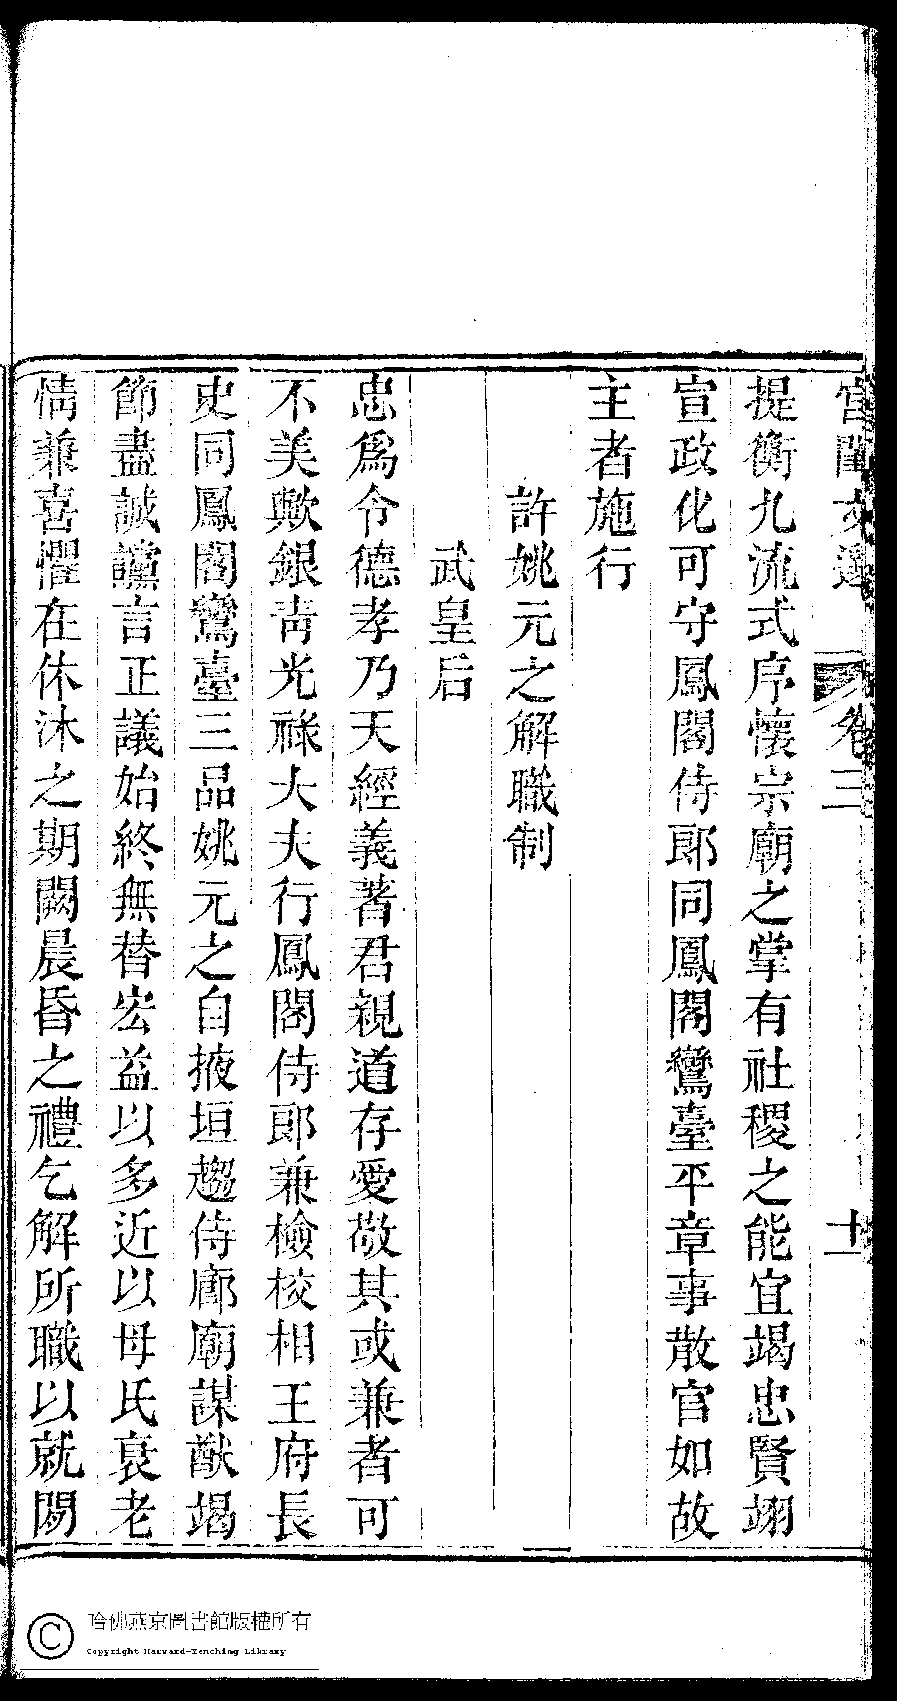 宮閨文選 卷三 十一
提衡九流式序懷宗廟之掌有社稷之能宜竭忠賢翊
宣政化可守鳳閣侍郎同鳳閣鸞臺平章事散官如故
主者施行
許姚元之解職制
武皇后
忠爲令德孝乃天經義著君親道存愛敬其或兼者可
不美歟銀靑光祿大夫行鳳閣侍郎兼檢校相王府長
史同鳳閣鸞臺三品姚元之自掖垣趨侍廊廟謀猷竭
節盡誠讜言正議始終無替宏益以多近以母氏衰老
情兼喜懼在休沐之期闕晨昏之禮乞解所職以就閑
哈佛燕京圖書館版權所有
Copyright Harvard-Yenching Library